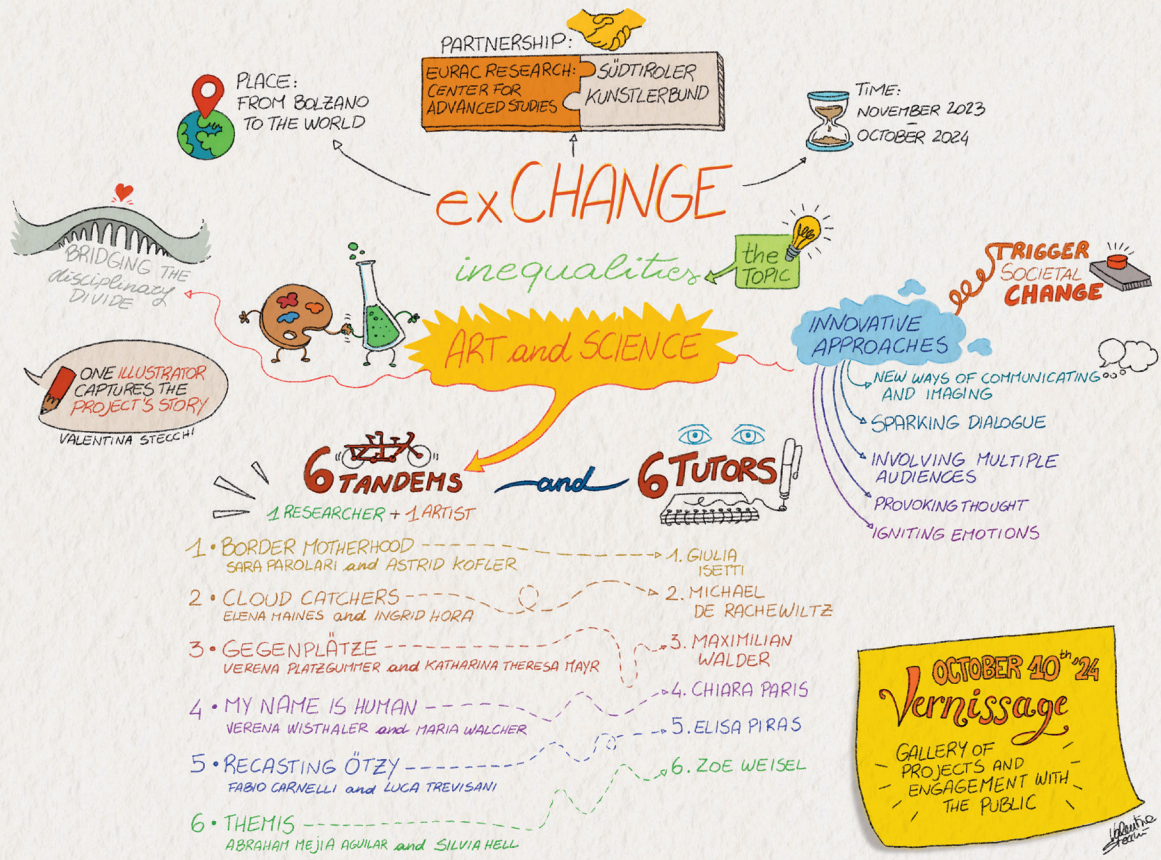 PARTNERSHIP:
EURAC RESEARCH:
CENTER FOR
ADVANCED STUDIES
SÜDTIROLER
KUNSTLERBUND
PLACE:
FROM BOLZANO
TO THE WORLD
TIME:
NOVEMBER 2023
-
OCTOBER 2024
exCHANGE
inequalities
the
TOPIC
BRIDGING THE
disciplinary
DIVIDE
ART and SCIENCE
INNOVATIVE
APPROACHES
TRIGGER
SOCIETAL
CHANGE
NEW WAYS OF COMMUNICATING
AND IMAGING
SPARKING DIALOGUE
INVOLVING MULTIPLE
AUDIENCES
PROVOKING THOUGHT
IGNITING EMOTIONS
ONE ILLUSTRATOR
CAPTURES THE
PROJECT'S STORY
VALENTINA STECCHI
6 TANDEMS
1 RESEARCHER + 1 ARTIST
and
6 TUTORS
1 • BORDER MOTHERHOOD
SARA PAROLARI and ASTRID KOFLER
2 • CLOUD CATCHERS
ELENA MAINES and INGRID HORA
3 • GEGENPLÄTZE
VERENA PLATZGUMMER and KATHARINA THERESA MAYR
4 • MY NAME IS HUMAN
VERENA WISTHALER and MARIA WALCHER
5 • RECASTING ÖTZY
FABIO CARNELLI and LUCA TREVISANI
6 • THEMIS
ABRAHAM MEJIA AGUILAR and SILVIA HELL
1. GIULIA
ISETTI
2. MICHAEL
DE RACHEWILTZ
3. MAXIMILIAN
WALDER
4. CHIARA PARIS
5. ELISA PIRAS
6. ZOE WEISEL
OCTOBER 10th '24
Vernissage
GALLERY OF
PROJECTS AND
ENGAGEMENT WITH
THE PUBLIC
Valentina
Stecchi